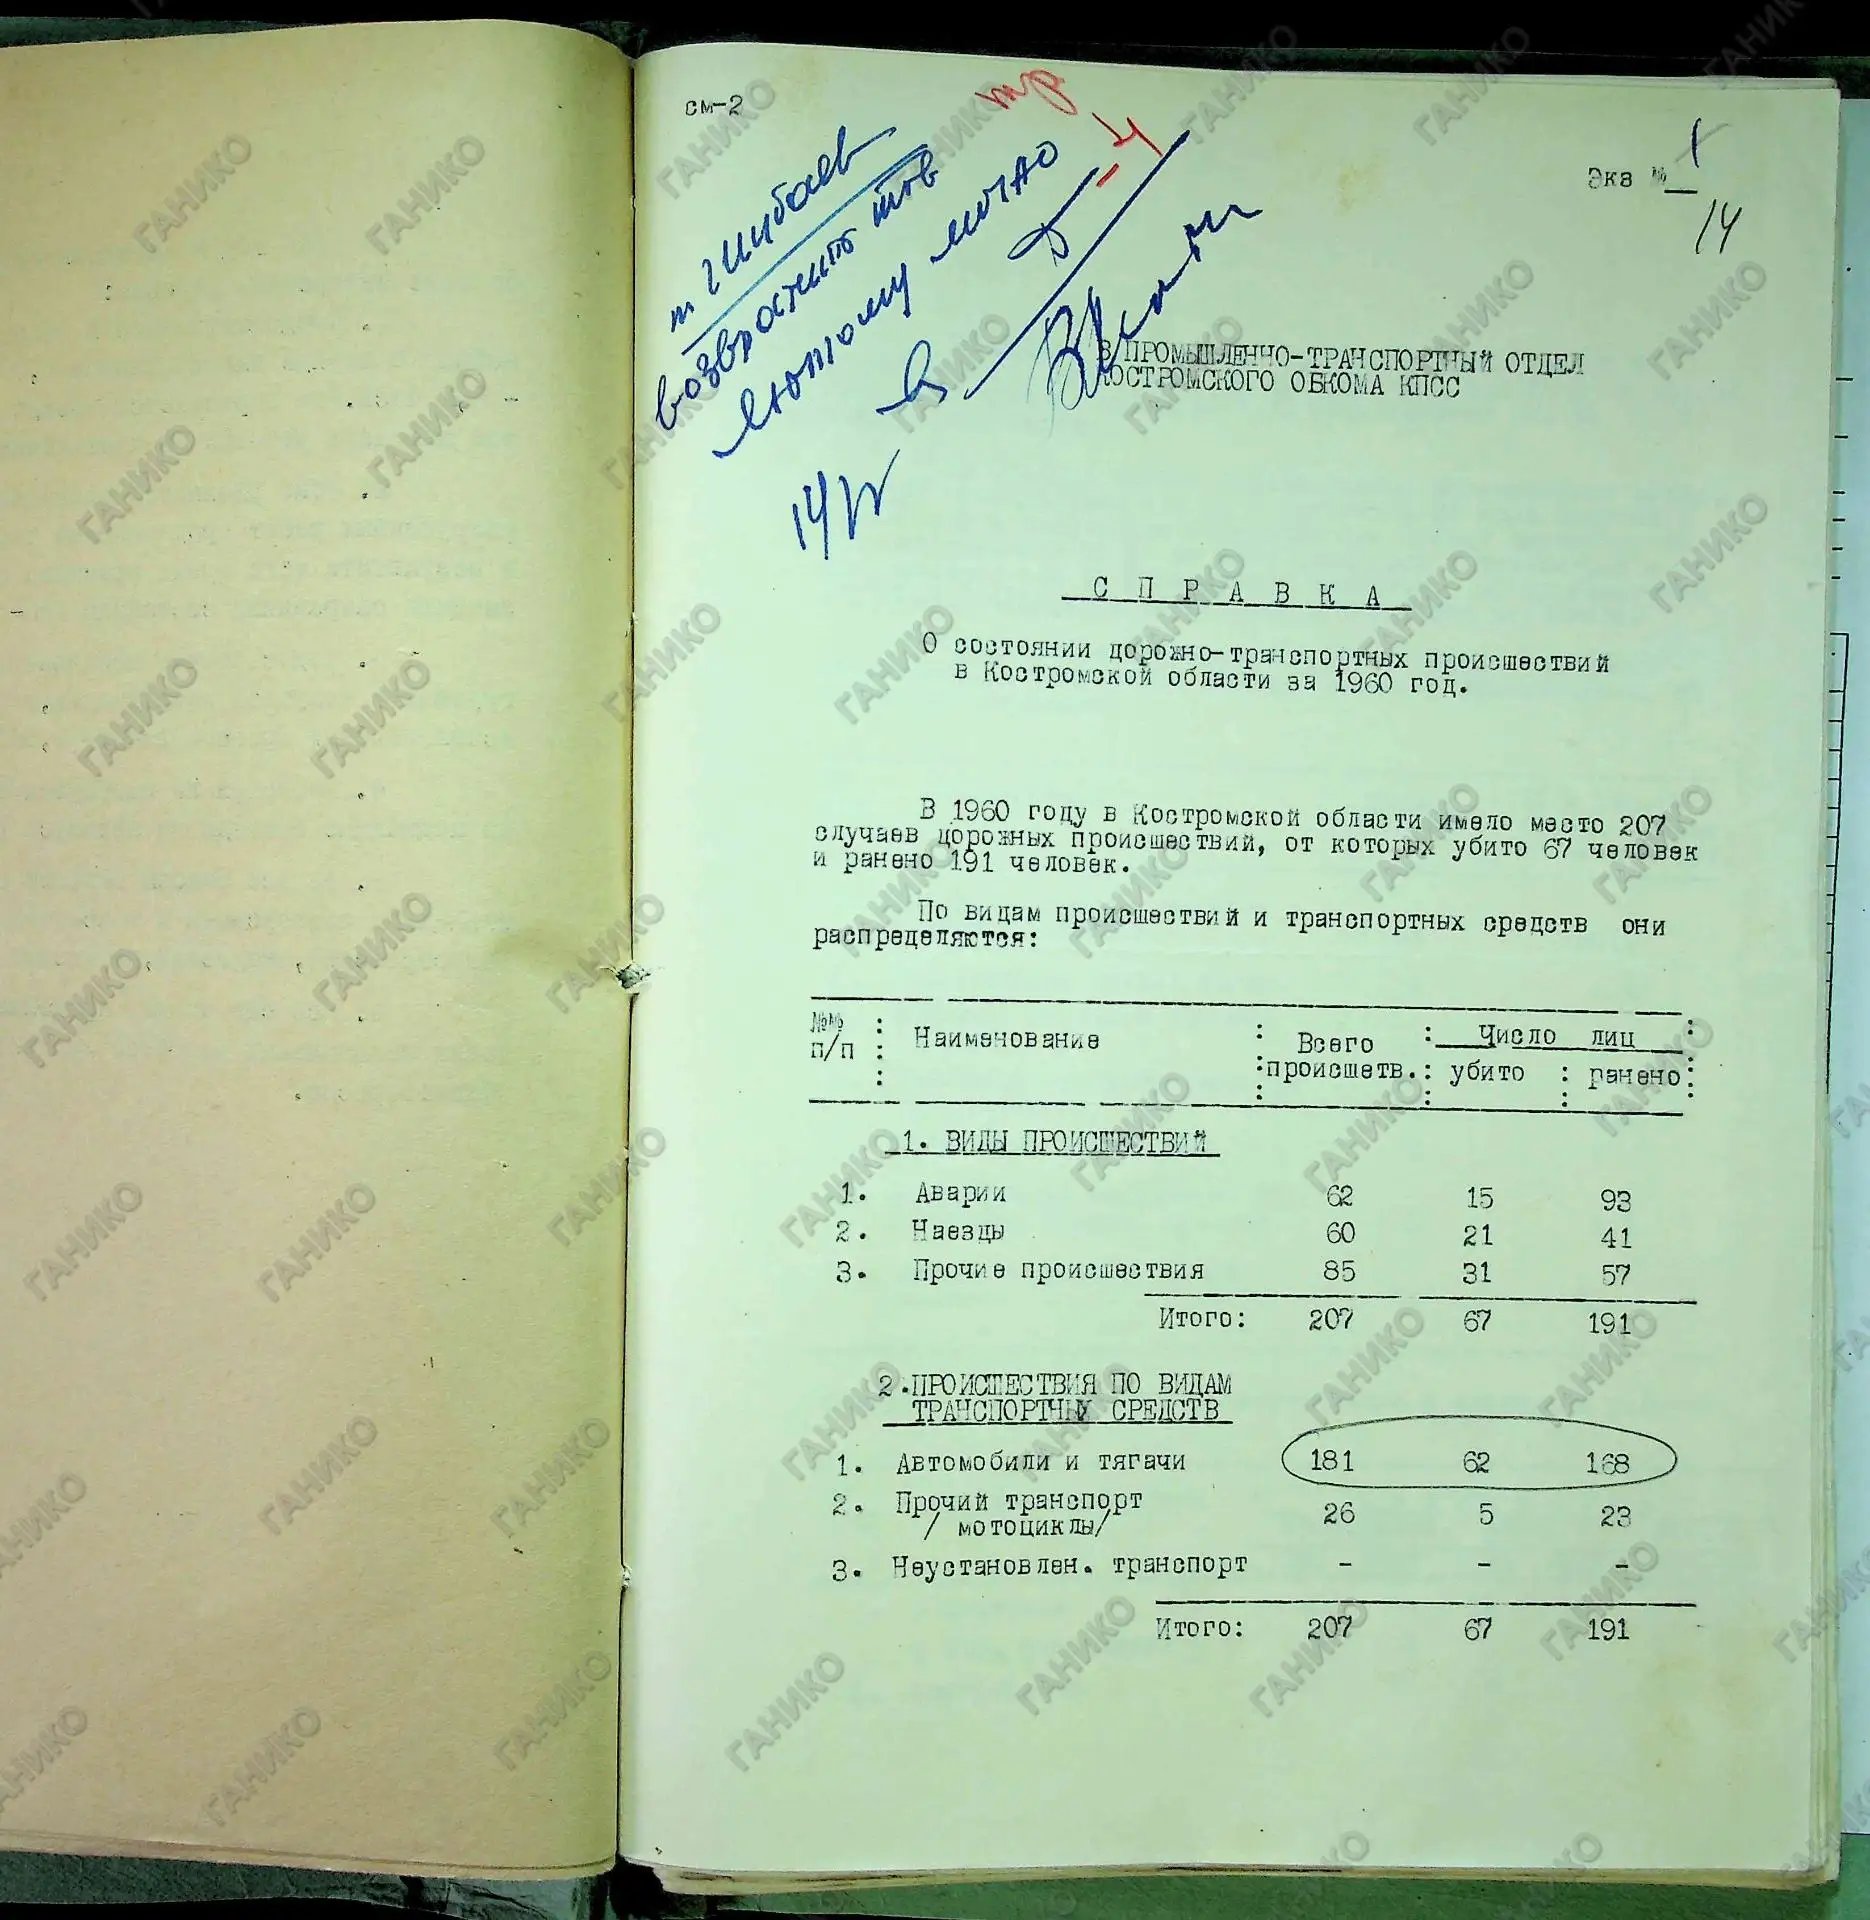 см-2
тр
-4
Экз № 1
14
т Шибаев
возвратить тов
лютому лично
В ПРОМЫШЛЕННО-ТРАНСПОРТНЫЙ ОТДЕЛ
КОСТРОМСКОГО ОБКОМА КПСС
С П Р А В К А
О состоянии дорожно-транспортных происшествий
в Костромской области за 1960 год.
В 1960 году в Костромской области имело место 207
случаев дорожных происшествий, от которых убито 67 человек
и ранено 191 человек.
По видам происшествий и транспортных средств они
распределяются:
№№ : Наименование : Всего : Число лиц :
п/п : : происшетв. : убито : ранено :
1. ВИДЫ ПРОИСШЕСТВИЙ
1. Аварии 62 15 93
2. Наезды 60 21 41
3. Прочие происшествия 85 31 57
Итого: 207 67 191
2.ПРОИСШЕСТВИЯ ПО ВИДАМ
ТРАНСПОРТНЫХ СРЕДСТВ
1. Автомобили и тягачи 181 62 168
2. Прочий транспорт 26 5 23
/ мотоциклы/
3. Неустановлен. транспорт - - -
Итого: 207 67 191
ГАНИКО